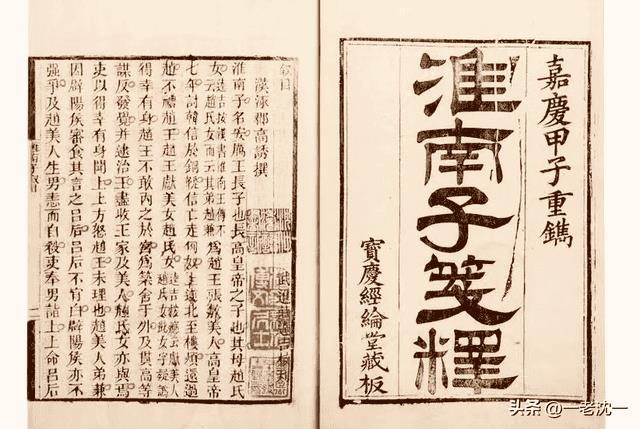 嘉慶甲子重鐫
淮南子箋釋
寶慶經綸堂藏板
敘目
漢涿郡高誘撰
淮南子名安厲王長子也長高皇帝之子也其母趙氏
女逵吉按漢書淮南王傳不云趙氏女而云其弟趙兼爲趙王張敖美人高皇帝
七年討韓信於銅鞮信亡走匈奴上遂北至樓煩還過
趙不禮趙王趙王獻美女趙氏
得幸有身趙王不敢內之於宮爲築舍于外及貫高等
謀反發覺并逮治王盡收王家及美人趙氏女亦與焉
吏以得幸有身聞上上方怒趙王未理也趙美人弟兼
因辟陽侯審食其言之呂后呂后不肯白辟陽侯亦不
强爭及趙美人生男恚而自殺吏奉男詣上上命呂后
头条 @一老沈一